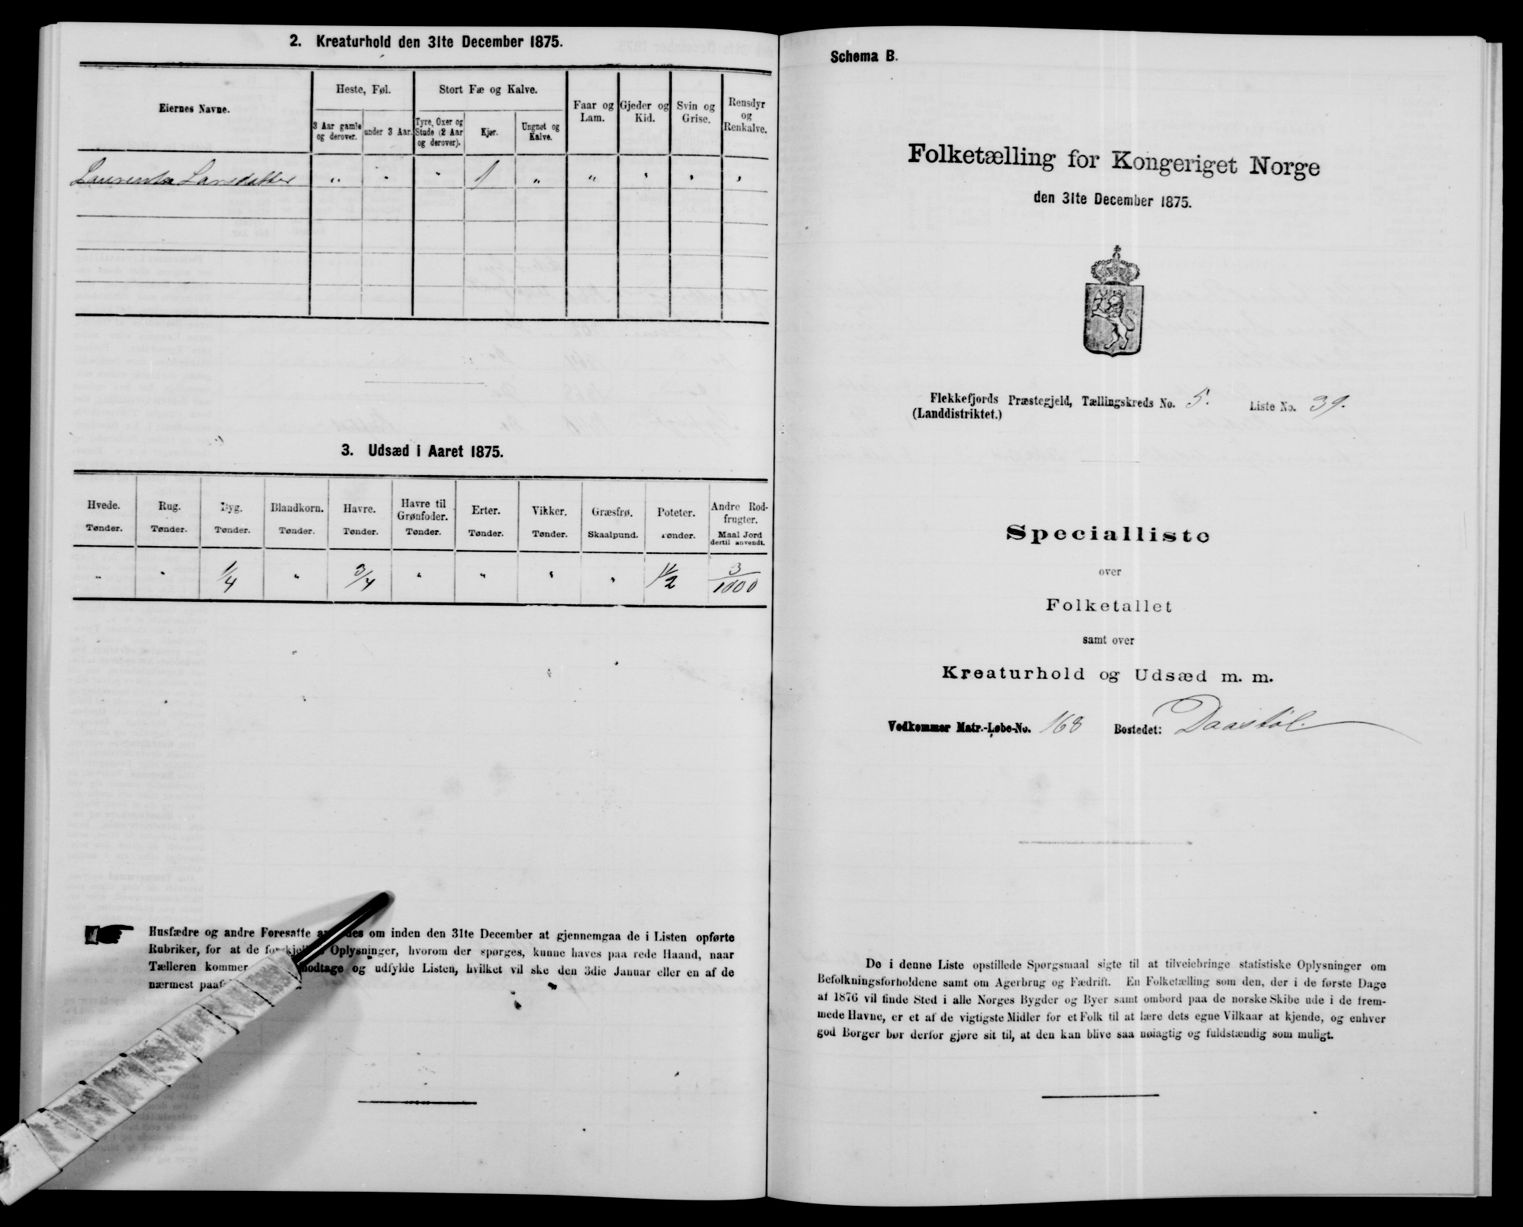 2. Kreaturhold den 31te December 1875.
Eiernes Navne.
Heste, Føl.
Stort Fæ og Kalve.
Faar og Lam.
Gjeder og Kid.
Svin og Grise.
Rensdyr og Renkalve.
3 Aar gamle og derover.
under 3 Aar.
Tyre, Oxer og Stude (2 Aar og derover).
Kjør.
Ungnøt og Kalve.
Larsdatter " " " 1 " " " " "
3. Udsæd i Aaret 1875.
Hvede. Rug. Byg. Blandkorn. Havre. Havre til Grønfoder. Erter. Vikker. Græsfrø. Poteter. Andre Rodfrugter.
Tønder. Tønder. Tønder. Tønder. Tønder. Tønder. Tønder. Tønder. Skaalpund. Tønder. Maal Jord dertil anvendt.
" " 1/4 " 3/4 " " " " 1 1/2 3/1000
Husfædre og andre Foresatte om inden den 31te December at gjennemgaa de i Listen opførte
Rubriker, for at de Oplysninger, hvorom der spørges, kunne haves paa rede Haand, naar
Tælleren kommer modtage og udfylde Listen, hvilket vil ske den 3die Januar eller en af de
nærmest
Schema B.
Folketælling for Kongeriget Norge
den 31te December 1875.
Flekkefjords Præstegjeld, Tællingskreds No. 5. Liste No. 39.
(Landdistriktet.)
Specialliste
over
Folketallet
samt over
Kreaturhold og Udsæd m. m.
Vedkommer Matr.-Løbe-No. 168 Bostedet: Daastøl.
De i denne Liste opstillede Spørgsmaal sigte til at tilveiebringe statistiske Oplysninger om
Befolkningsforholdene samt om Agerbrug og Fædrift. En Folketælling som den, der i de første Dage
af 1876 vil finde Sted i alle Norges Bygder og Byer samt ombord paa de norske Skibe ude i de frem-
mede Havne, er et af de vigtigste Midler for et Folk til at lære dets egne Vilkaar at kjende, og enhver
god Borger bør derfor gjøre sit til, at den kan blive saa nøiagtig og fuldstændig som muligt.